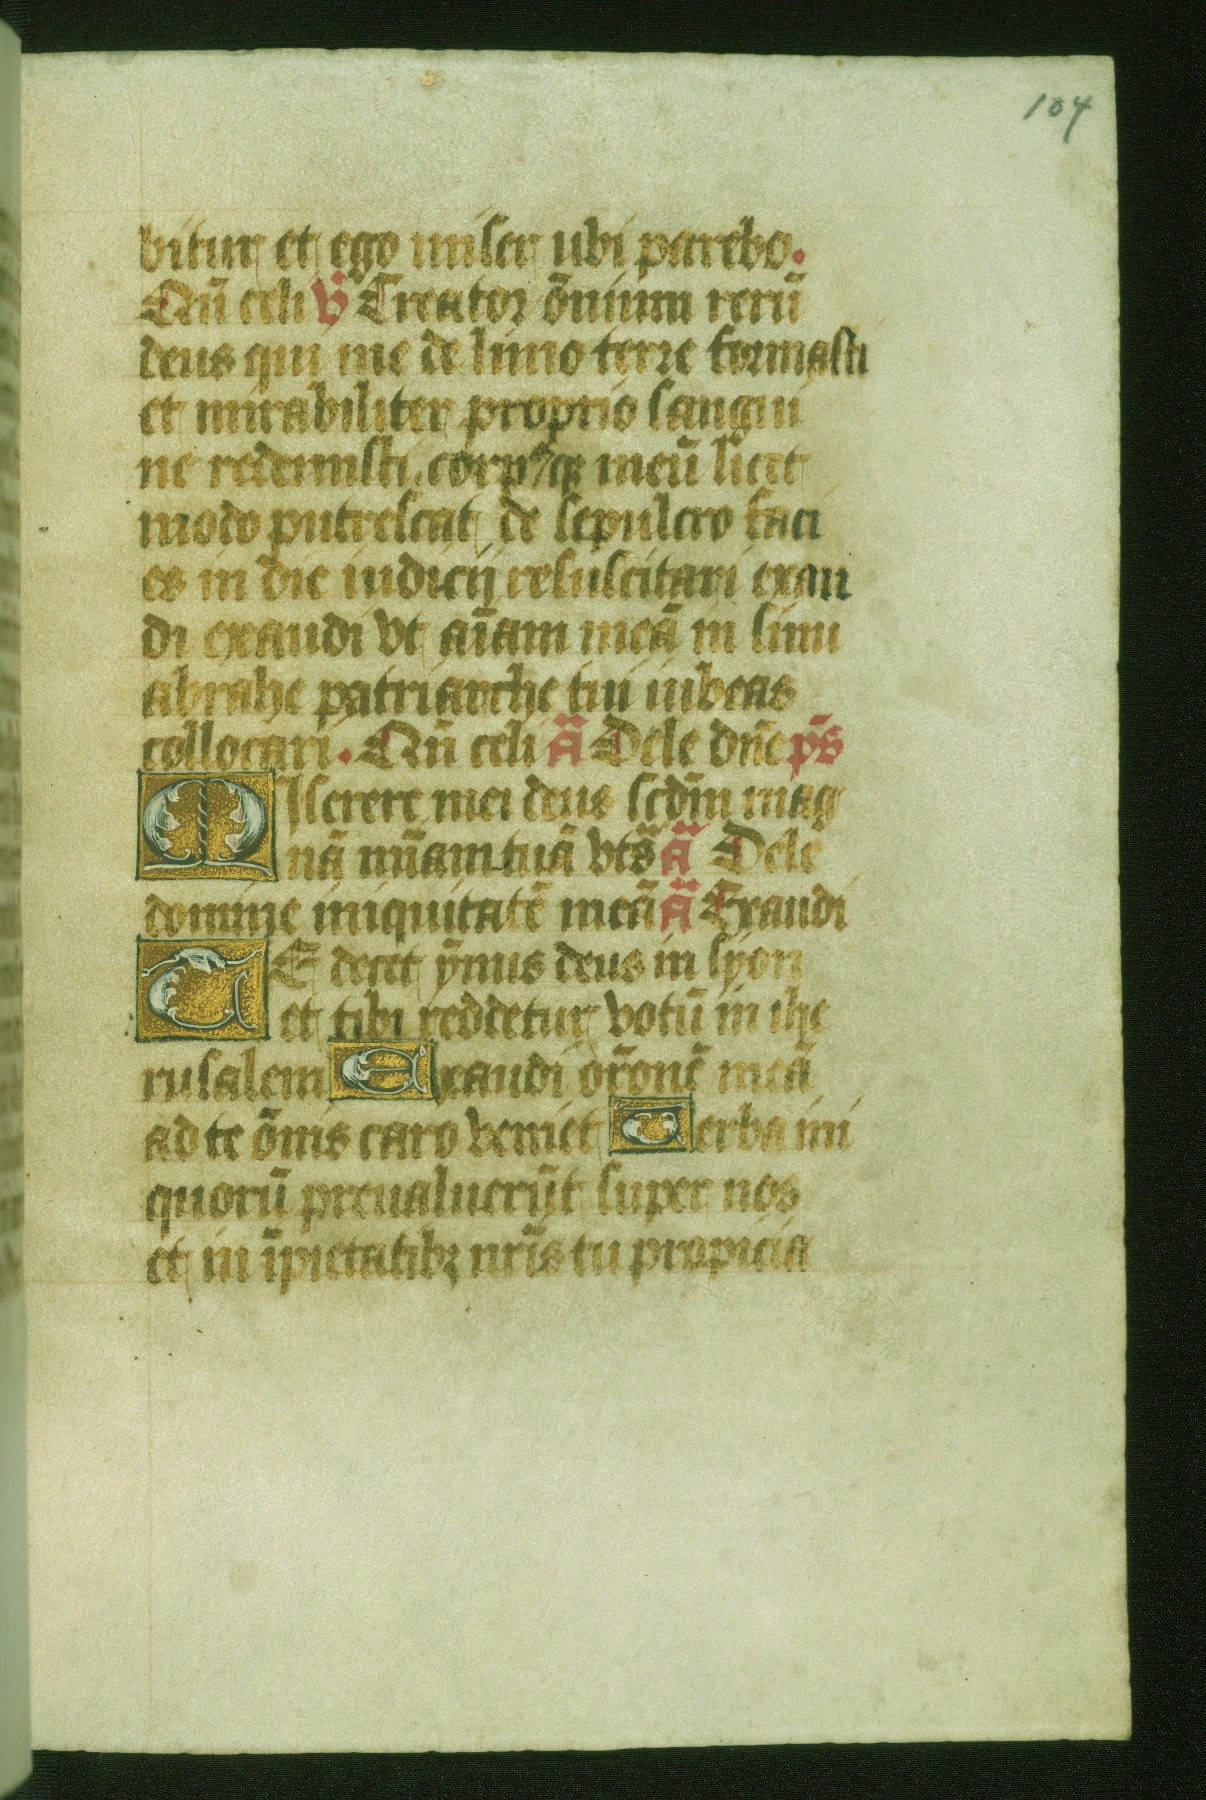 104
bitur et ego miser ubi parebo.
Qñ celi v̄ Creator õnium rerũ
deus qui me de limo terre formasti
et mirabiliter proprio sangui
ne redemisti corpꝰqꝫ meũ licet
modo putrescat de sepulcro faci
es in die iudicij resuscitari exau
di exaudi vt aĩam meã in sinu
abrahe patriarche tui iubeas
collocari. Qñ celi ã Dele dñe p̃s
Miserere mei deus scdm̃ mag
nã mĩam tuã vts̃ ã Dele
domine iniquitatẽ meã ã Exaudi
TE decet ỹmus deus in syon
et tibi reddetur votũ in ihe
rusalem Exaudi orõnẽ meã
ad te õnis caro veniet Verba ini
quorũ preualuerũt super nos
et in ĩpietatibꝫ nrĩs tu propicia